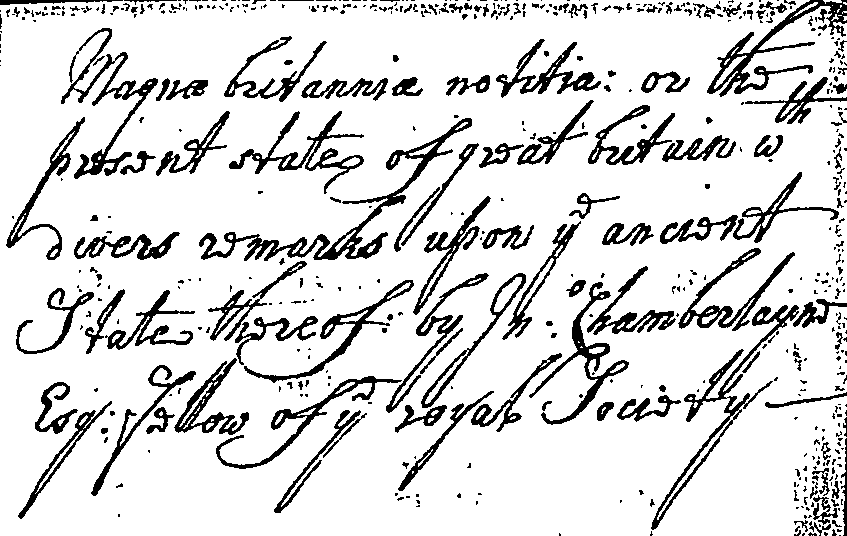 Magnæ britanniæ notitia: or the
present state of great britain wth
divers remarks upon ye ancient
State thereof: by Jn: Chamberlayne
Esq: Fellow of ye royal Society